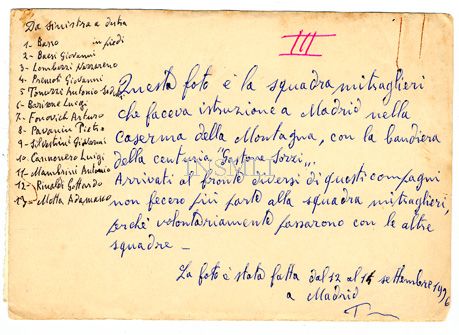 Da sinistra a destra
1- Basso in piedi
2- Baesi Giovanni
3- Lombezzi Nazzareno
4- Premoli Giovanni
5 Tonussi Antonio
6- Barisone Luigi
7- Fonovich Antonio
8 - Pavanin Pietro
9 - Silvestrini Giovanni
10. Cannonero Luigi
11- Mambrini Antonio
12- Rinaldi Gottardo
13- Motta Adamasco
III
Questa foto è la squadra mitraglieri
che faceva istruzione a Madrid nella
caserma della Montagna, con la bandiera
della centuria "Gastone Sozzi",.
Arrivati al fronte diversi di questi compagni
non fecero più parte alla squadra mitraglieri,
perchè volontariamente passarono con le altre
squadre -
La foto è stata fatta dal 12 al settembre 1936
a Madrid